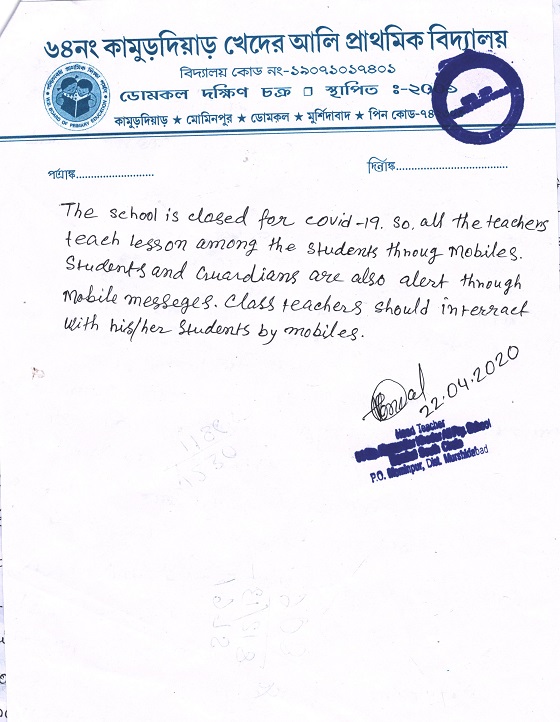 ৬৪নং কামুড়দিয়াড় খেদের আলি প্রাথমিক বিদ্যালয়
বিদ্যালয় কোড নং-১৯০৭১০১৭৪০১
ডোমকল দক্ষিণ চক্র □ স্থাপিত ঃ-২০
কামুড়দিয়াড় ★ মোমিনপুর ★ ডোমকল ★ মুর্শিদাবাদ ★ পিন কোড-৭৪
BOARD OF PRIMARY EDUCATION
পত্রাঙ্ক..........................
দিনাঙ্ক......................................
The school is closed for covid-19. So, all the teachers
teach lesson among the students throug Mobiles.
Students and Guardians are also alert through
Mobile messeges. Class teachers should interract
with his/her students by mobiles.
22.04.2020
Head Teacher
P.O. Mominpur, Dist. Murshidabad